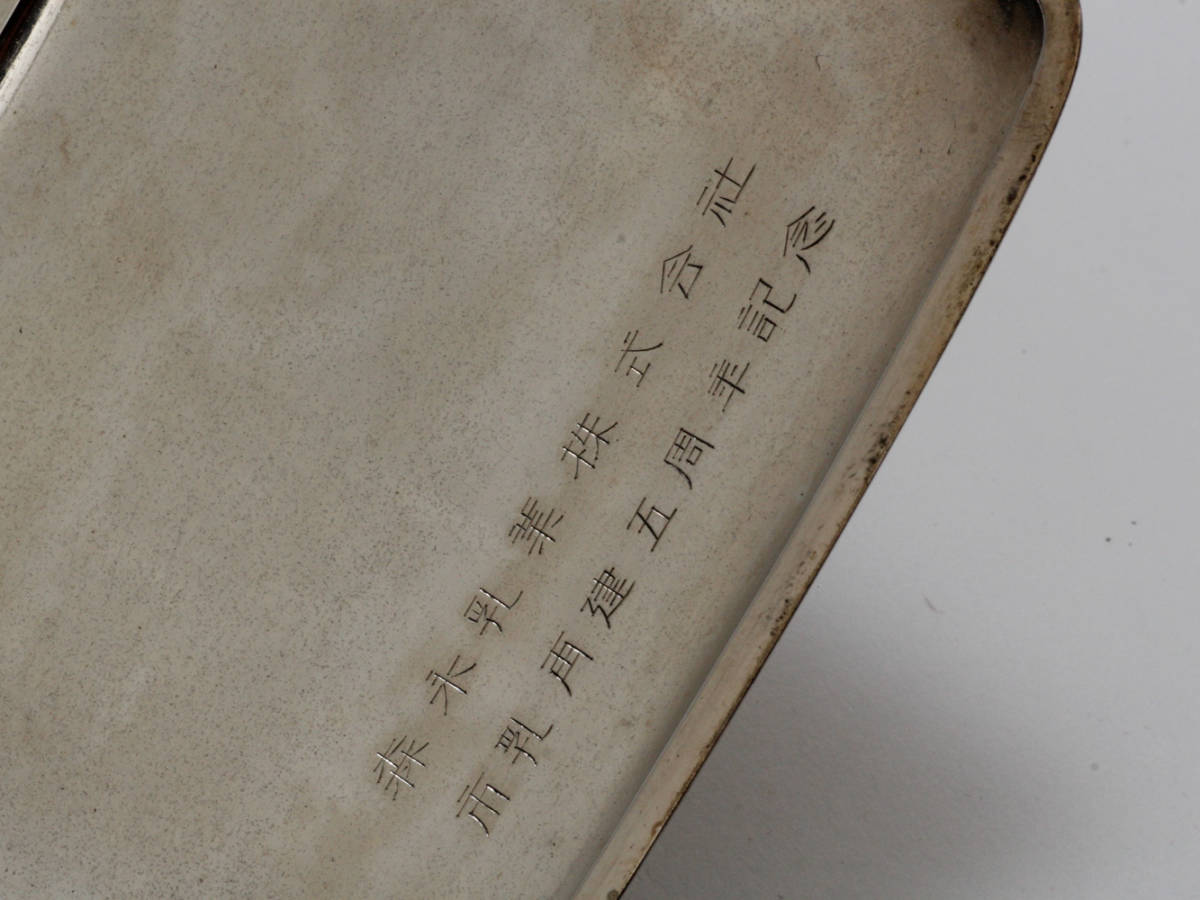 森永乳業株式会社
市乳再建五周年記念